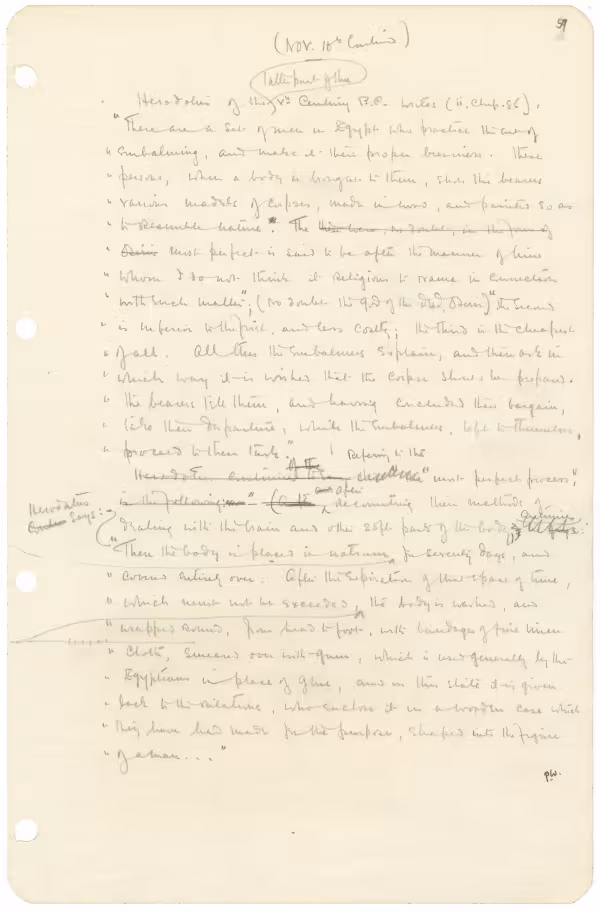 59
(Nov. 10th Continued)
latter part of the
Herodotus of the Vth Century B.C. writes (ii, Chap. 86).
"There are a set of men in Egypt who practice the art of
" embalming, and make it their proper business. These
" persons, when a body is brought to them, show the bearers
" various models of corpses, made in wood, and painted so as
" to resemble nature". The
" most perfect is said to be after the manner of him
" whom I do not think it religious to name in connection
" with such matter", (no doubt the God of the dead, Osiris) "the second
" is inferior to the first, and less costly; the third is the cheapest
" of all. All this the embalmers explain, and then ask in
" which way it is wished that the corpse should be prepared.
" The bearers tell them, and having concluded their bargain,
" take their departure, while the embalmers, left to themselves,
" proceed to their task."
Referring to the
Herodotus continued "most perfect process",
and after recounting their methods of
Herodotus says:
dealing with the brain and other soft parts of the body,
"Then the body is placed in natrum, for seventy days, and
" covered entirely over. After the expiration of that space of time,
" which must not be exceeded, the body is washed, and
" wrapped round, from head to foot, with bandages of fine linen
" cloth, smeared over with gum, which is used generally by the
" Egyptians in place of glue, and in this state it is given
" back to the relations, who enclose it in a wooden case which
" they have had made for the purpose, shaped into the figure
" of a man..."